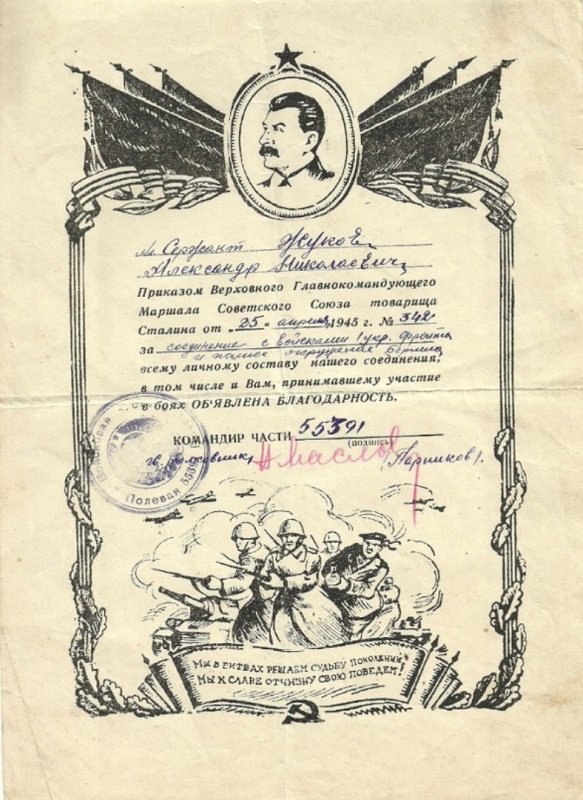 мл. Сержант Жуков
Александр Николаевич,
Приказом Верховного Главнокомандующего
Маршала Советского Союза товарища
Сталина от „25“ апреля 1945 г. № 342
за соединение с войсками 1 укр. фронта
и полное окружение Берлина,
всему личному составу нашего соединения,
в том числе и Вам, принимавшему участие
в боях ОБ'ЯВЛЕНА БЛАГОДАРНОСТЬ.
КОМАНДИР ЧАСТИ 55391
(подпись)
гв. полковник, Маслов
Полевая 55391
МЫ В БИТВАХ РЕШАЕМ СУДЬБУ ПОКОЛЕНИЙ,
МЫ К СЛАВЕ ОТЧИЗНУ СВОЮ ПОВЕДЕМ!